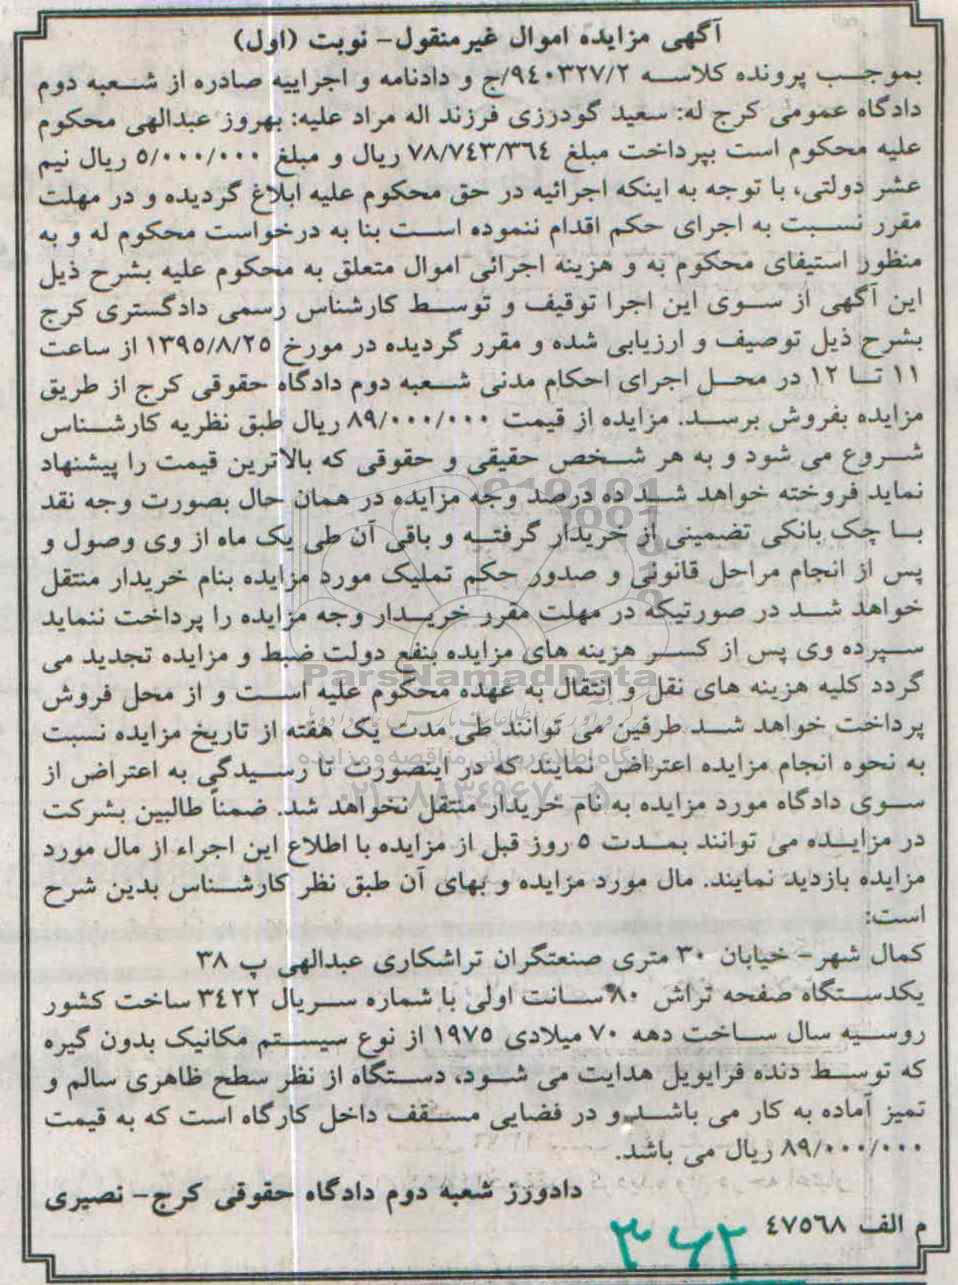 آگهی مزایده اموال غیرمنقول- نوبت (اول)
بموجب پرونده کلاسه ۹۴۰۳۲۷/۲/ج و دادنامه و اجراییه صادره از شعبه دوم
دادگاه عمومی کرج له: سعید گودرزی فرزند اله مراد علیه: بهروز عبدالهی محکوم
علیه محکوم است بپرداخت مبلغ ۷۸/۷۴۳/۳۶۴ ریال و مبلغ ۵/۰۰۰/۰۰۰ ریال نیم
عشر دولتی، با توجه به اینکه اجرائیه در حق محکوم علیه ابلاغ گردیده و در مهلت
مقرر نسبت به اجرای حکم اقدام ننموده است بنا به درخواست محکوم له و به
منظور استیفای محکوم به و هزینه اجرائی اموال متعلق به محکوم علیه بشرح ذیل
این آگهی از سوی این اجرا توقیف و توسط کارشناس رسمی دادگستری کرج
بشرح ذیل توصیف و ارزیابی شده و مقرر گردیده در مورخ ۱۳۹۵/۸/۲۵ از ساعت
۱۱ تا ۱۲ در محل اجرای احکام مدنی شعبه دوم دادگاه حقوقی کرج از طریق
مزایده بفروش برسد. مزایده از قیمت ۸۹/۰۰۰/۰۰۰ ریال طبق نظریه کارشناس
شروع می شود و به هر شخص حقیقی و حقوقی که بالاترین قیمت را پیشنهاد
نماید فروخته خواهد شد ده درصد وجه مزایده در همان حال بصورت وجه نقد
با چک بانکی تضمینی از خریدار گرفته و باقی آن طی یک ماه از وی وصول و
پس از انجام مراحل قانونی و صدور حکم تملیک مورد مزایده بنام خریدار منتقل
خواهد شد در صورتیکه در مهلت مقرر خریدار وجه مزایده را پرداخت ننماید
سپرده وی پس از کسر هزینه های مزایده بنفع دولت ضبط و مزایده تجدید می
گردد کلیه هزینه های نقل و انتقال به عهده محکوم علیه است و از محل فروش
پرداخت خواهد شد طرفین می توانند طی مدت یک هفته از تاریخ مزایده نسبت
به نحوه انجام مزایده اعتراض نمایند که در اینصورت تا رسیدگی به اعتراض از
سوی دادگاه مورد مزایده به نام خریدار منتقل نخواهد شد. ضمناً طالبین بشرکت
در مزایده می توانند بمدت ۵ روز قبل از مزایده با اطلاع این اجراء از مال مورد
مزایده بازدید نمایند. مال مورد مزایده و بهای آن طبق نظر کارشناس بدین شرح
است:
کمال شهر- خیابان ۳۰ متری صنعتگران تراشکاری عبدالهی پ ۳۸
یکدستگاه صفحه تراش ۸۰ سانت اولی با شماره سریال ۳۴۲۲ ساخت کشور
روسیه سال ساخت دهه ۷۰ میلادی ۱۹۷۵ از نوع سیستم مکانیک بدون گیره
که توسط دنده فرایویل هدایت می شود، دستگاه از نظر سطح ظاهری سالم و
تمیز آماده به کار می باشد و در فضایی مسقف داخل کارگاه است که به قیمت
۸۹/۰۰۰/۰۰۰ ریال می باشد.
دادورز شعبه دوم دادگاه حقوقی کرج- نصیری
م الف ۴۷۵۶۸
ParsNamadData
پایگاه اطلاع رسانی مناقصه و مزایده
۰۲۱-۸۸۳۴۹۶۷۰-۵